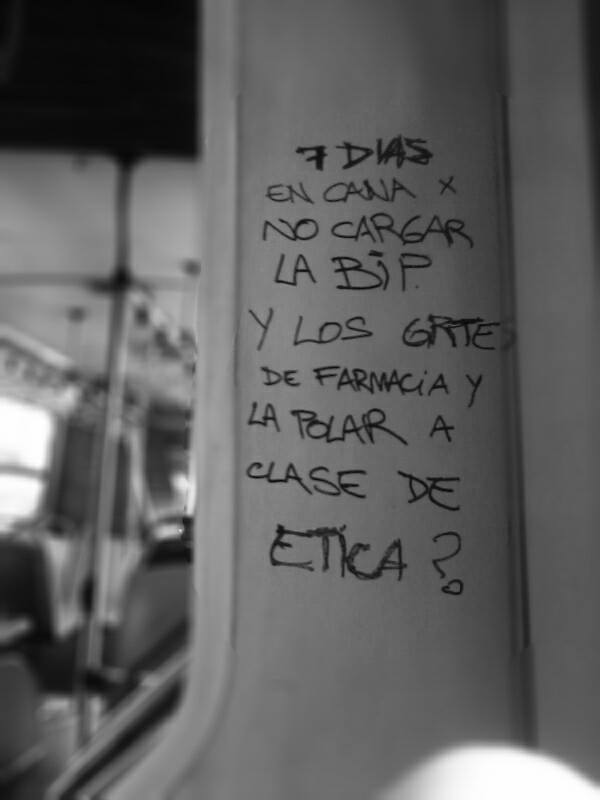 7 DIAS
EN CANA X
NO CARGAR
LA BiP.
Y LOS GRTES
DE FARMACiA Y
LA POLAR A
CLASE DE
ETiCA?